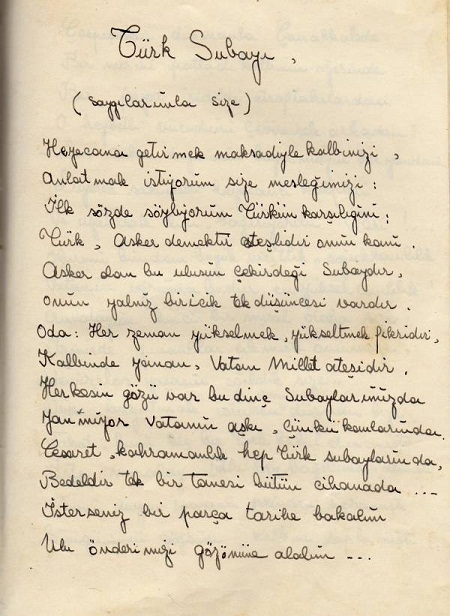 Türk Subayı,
(saygılarımla size)
Heyecana getirmek maksadıyle kalbinizi,
Anlatmak istiyorum size mesleğimizi:
İlk sözde söylüyorum Türkün karşılığını:
Türk, Asker demektir ateşlidir onun kanı.
Asker dan bu ulusun çekirdeği Subaydır,
onun yalnız biricik tek düşüncesi vardır.
Oda: Her zaman yükselmek, yükseltmek fikridir,
Kalbinde yanan, Vatan Millet ateşidir.
Herkesin gözü var bu dinç Subaylarımızda
Yanmıyor Vatanın aşkı, Çünkü kanlarında.
Cesaret, kahramanlık hep Türk subaylarında,
Bedeldir tek bir tanesi bütün cihanada ....
İsterseniz bir parça tarihe bakalım
Ulu önderimizi gözönüne alalım ---